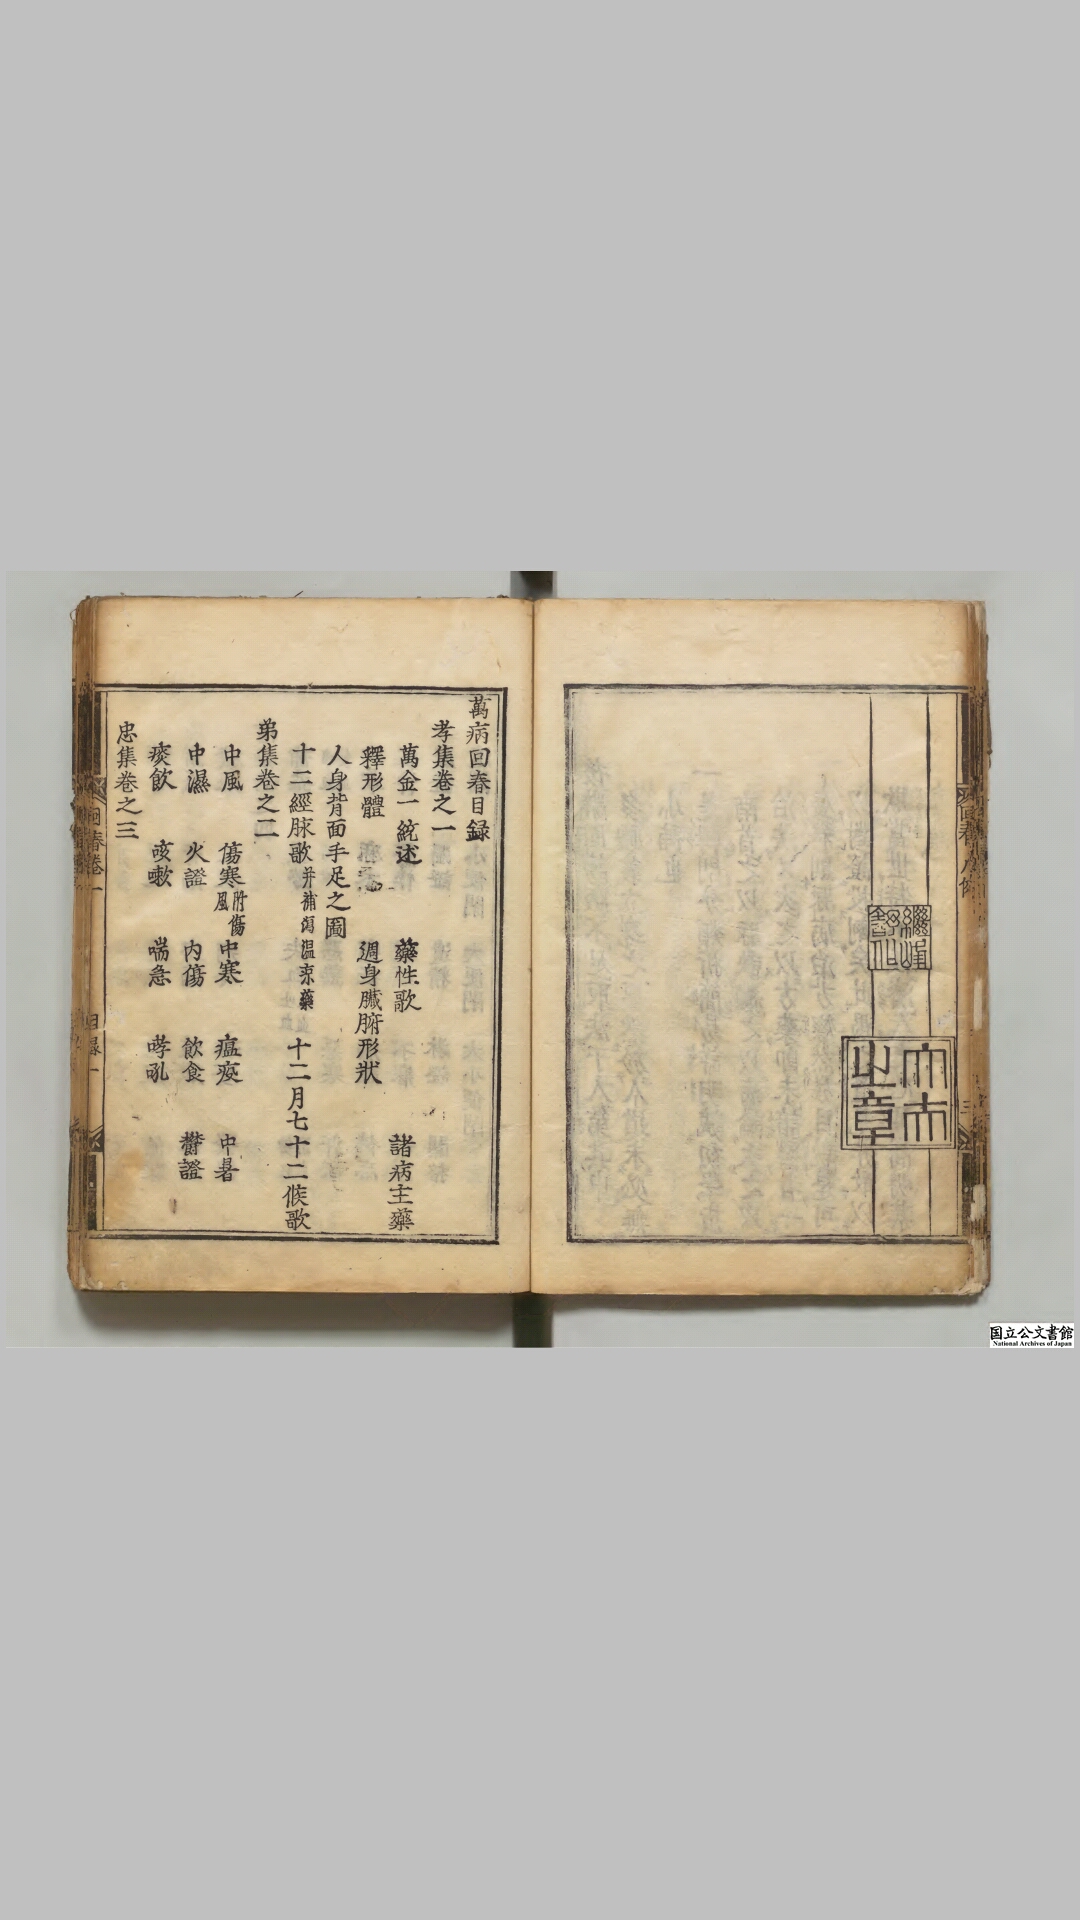 繼峰
舒化
之章
萬病回春目録
孝集卷之一
萬金一統述 藥性歌 諸病主藥
釋形體 週身臟腑形狀
人身背面手足之圖
十二經脉歌并補瀉温凉藥 十二月七十二候歌
弟集卷之二
中風 傷寒附傷風 中寒 瘟疫 中暑
中濕 火證 内傷 飲食 鬱證
痰飲 咳嗽 喘急 哮吼
忠集卷之三
回春卷一
目録一
国立公文書館
National Archives of Japan